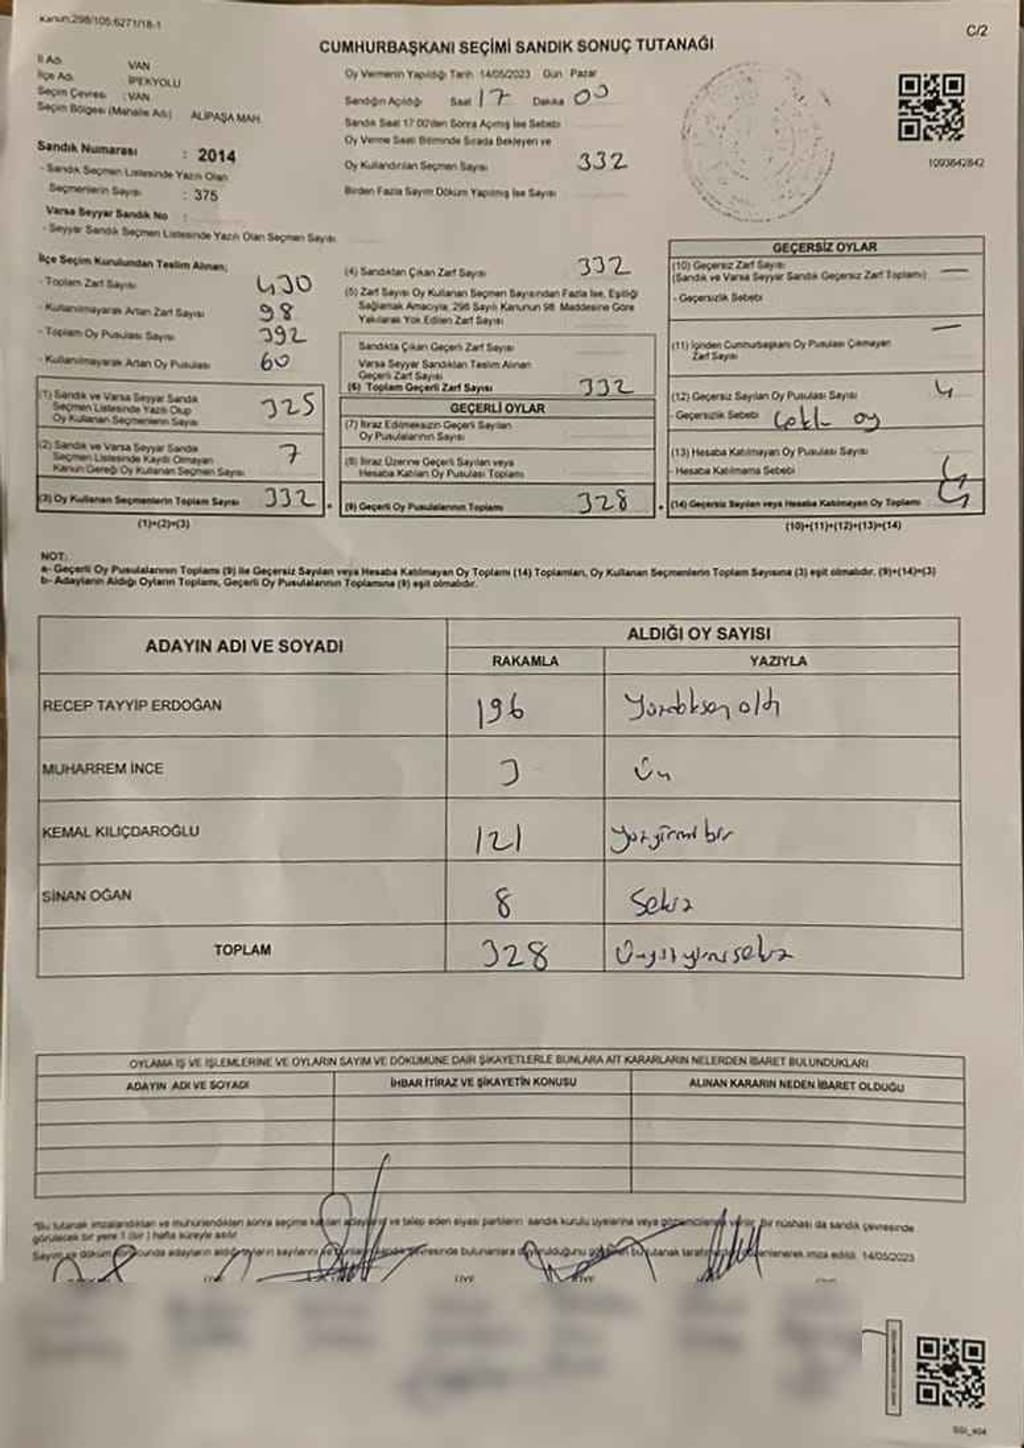 Kanun:298/105;6271/18-1
C/2
CUMHURBAŞKANI SEÇİMİ SANDIK SONUÇ TUTANAĞI
İl Adı VAN
İlçe Adı İPEKYOLU
Seçim Çevresi : VAN
Seçim Bölgesi (Mahalle Adı) ALİPAŞA MAH.
Sandık Numarası : 2014
- Sandık Seçmen Listesinde Yazılı Olan
Seçmenlerin Sayısı : 375
Varsa Seyyar Sandık No :
- Seyyar Sandık Seçmen Listesinde Yazılı Olan Seçmen Sayısı
Oy Vermenin Yapıldığı Tarih 14/05/2023 Gün Pazar
Sandığın Açıldığı Saat 17 Dakika 00
Sandık Saat 17:00'den Sonra Açılmış İse Sebebi
Oy Verme Saati Bitiminde Sırada Bekleyen ve
Oy Kullandırılan Seçmen Sayısı 332
Birden Fazla Sayım Döküm Yapılmış İse Sayısı
1093642842
İlçe Seçim Kurulundan Teslim Alınan;
- Toplam Zarf Sayısı 430
- Kullanılmayarak Artan Zarf Sayısı 98
- Toplam Oy Pusulası Sayısı 392
- Kullanılmayarak Artan Oy Pusulası 60
(1) Sandık ve Varsa Seyyar Sandık
Seçmen Listesinde Yazılı Olup
Oy Kullanan Seçmenlerin Sayısı 325
(2) Sandık ve Varsa Seyyar Sandık
Seçmen Listesinde Kayıtlı Olmayan
Kanun Gereği Oy Kullanan Seçmen Sayısı 7
(3) Oy Kullanan Seçmenlerin Toplam Sayısı 332
(1)+(2)=(3)
(4) Sandıktan Çıkan Zarf Sayısı 332
(5) Zarf Sayısı Oy Kullanan Seçmen Sayısından Fazla İse, Eşitliği
Sağlamak Amacıyla, 298 Sayılı Kanunun 98. Maddesine Göre
Yakılarak Yok Edilen Zarf Sayısı
Sandıkta Çıkan Geçerli Zarf Sayısı
Varsa Seyyar Sandıktan Teslim Alınan
Geçerli Zarf Sayısı
(6) Toplam Geçerli Zarf Sayısı 332
GEÇERLİ OYLAR
(7) İtiraz Edilmeksizin Geçerli Sayılan
Oy Pusulalarının Sayısı
(8) İtiraz Üzerine Geçerli Sayılan veya
Hesaba Katılan Oy Pusulası Toplamı
(9) Geçerli Oy Pusulalarının Toplamı 328
GEÇERSİZ OYLAR
(10) Geçersiz Zarf Sayısı
(Sandık ve Varsa Seyyar Sandık Geçersiz Zarf Toplamı) —
- Geçersizlik Sebebi
(11) İçinden Cumhurbaşkanı Oy Pusulası Çıkmayan
Zarf Sayısı —
(12) Geçersiz Sayılan Oy Pusulası Sayısı 4
- Geçersizlik Sebebi oy
(13) Hesaba Katılmayan Oy Pusulası Sayısı
- Hesaba Katılmama Sebebi
(14) Geçersiz Sayılan veya Hesaba Katılmayan Oy Toplamı
(10)+(11)+(12)+(13)=(14)
NOT:
a- Geçerli Oy Pusulalarının Toplamı (9) ile Geçersiz Sayılan veya Hesaba Katılmayan Oy Toplamı (14) Toplamları, Oy Kullanan Seçmenlerin Toplam Sayısına (3) eşit olmalıdır. (9)+(14)=(3)
b- Adayların Aldığı Oyların Toplamı, Geçerli Oy Pusulalarının Toplamına (9) eşit olmalıdır.
ADAYIN ADI VE SOYADI
ALDIĞI OY SAYISI
RAKAMLA YAZIYLA
RECEP TAYYİP ERDOĞAN 196
MUHARREM İNCE 3
KEMAL KILIÇDAROĞLU 121 yüzyirmi bir
SİNAN OĞAN 8 Sekiz
TOPLAM 328
OYLAMA İŞ VE İŞLEMLERİNE VE OYLARIN SAYIM VE DÖKÜMÜNE DAİR ŞİKAYETLERLE BUNLARA AİT KARARLARIN NELERDEN İBARET BULUNDUKLARI
ADAYIN ADI VE SOYADI İHBAR İTİRAZ VE ŞİKAYETİN KONUSU ALINAN KARARIN NEDEN İBARET OLDUĞU
"Bu tutanak imzalandıktan ve mühürlendikten sonra seçime katılan ve talep eden siyasi partilerin sandık kurulu üyelerine veya verilir, bir nüshası da sandık çevresinde
görülecek bir yere 1 (bir) hafta süreyle asılır.
14/05/2023